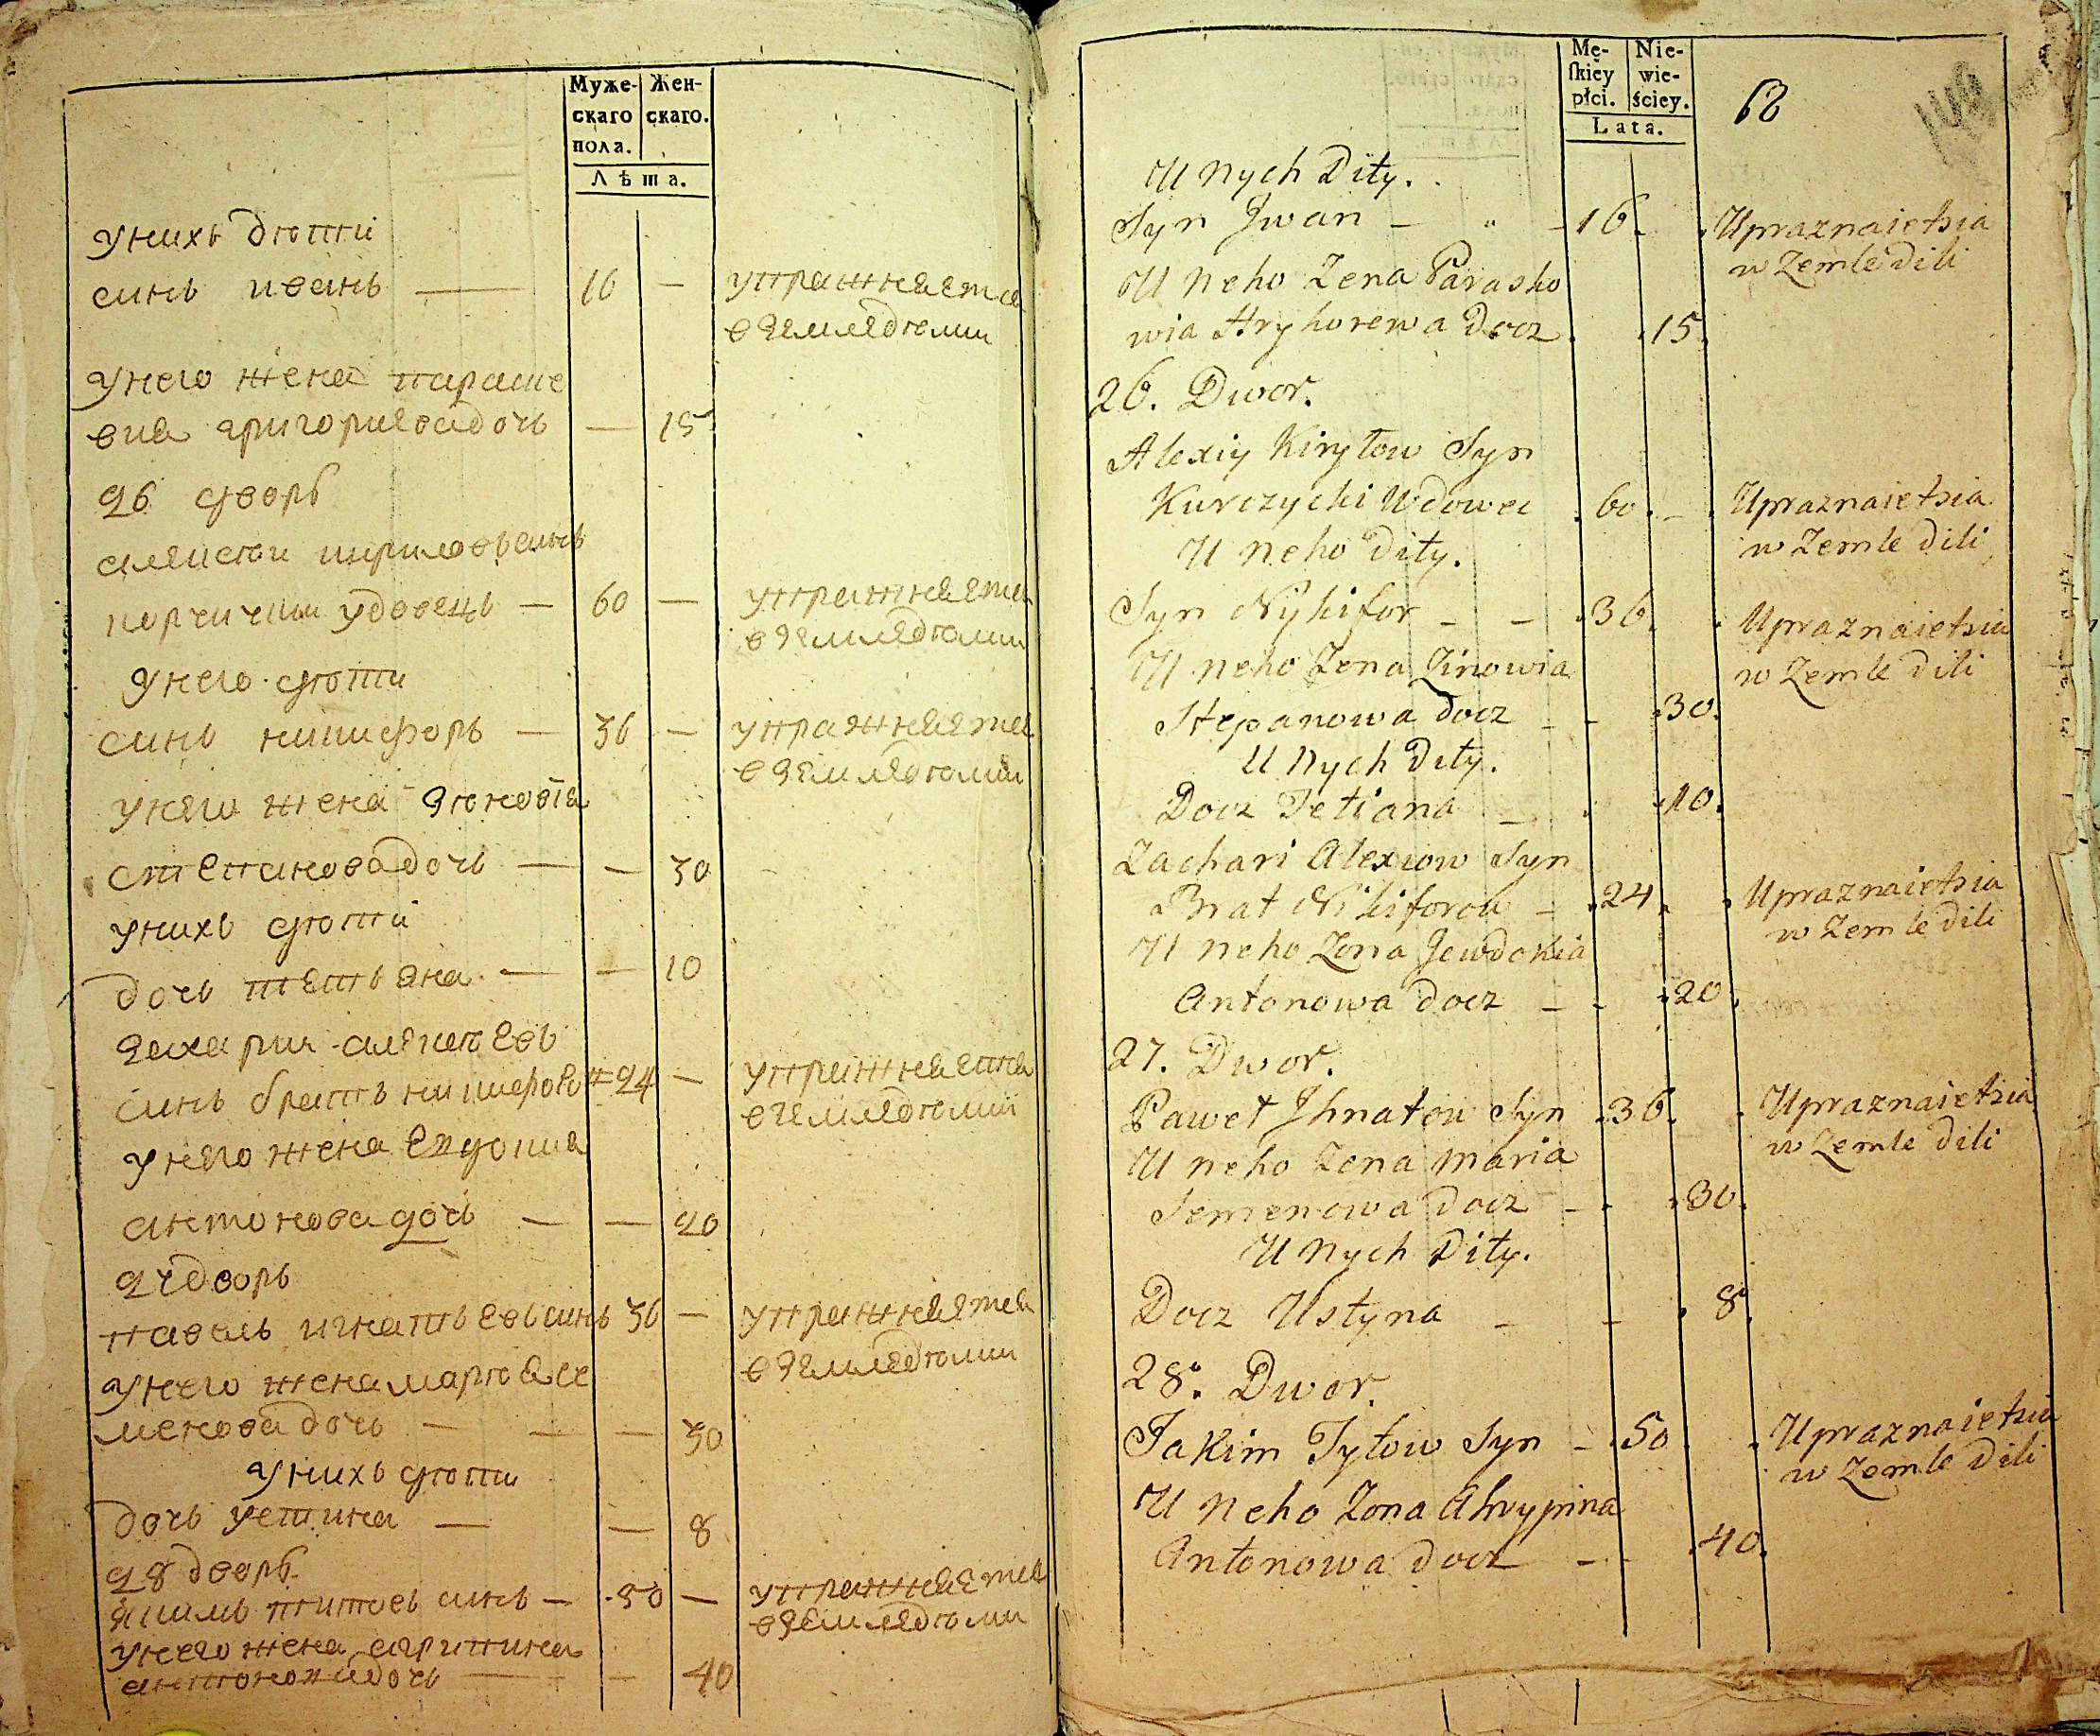 Муже-
скаго
пола.
Жен-
скаго.
Лѣта.
унихъ дѣти
синъ иванъ — 16 — упражняетца
в земледѣлии
унего жена параске
вия григориева дочь — 15
26 дворъ
алексѣи кириловъ синъ
корчичкии удовецъ — 60 — упражняетца
в земледѣлии
унего дѣти
синъ никифоръ — 36 — упражняетца
в земледѣлии
унего жена зѣновія
степанова дочь — — 30
унихъ дѣти
дочь татьяна — — 10
захарии алексѣевъ
синъ братъ никифоровъ 24 — упражняетца
в земледѣлии
унего жена евдокия
антонова дочь — — 20
27 дворъ
павелъ игнатьевъ синъ 36 — упражняетца
в земледѣлии
унего жена марѣя се
менова дочь — — — 30
унихъ дѣти
дочь устина — — 8
28 дворъ
якимъ титовъ синъ — 50 — упражняетца
в земледѣлии
унего жена агрипина
антонова дочь — — 40
Mę-
ſkiéy
płci.
Nie-
wie-
ściey.
Lata.
68
U nych Dity.
Syn Jwan — 16. Upraznaietsia
w Zemledili
U neho Zena Parasko
wia Hryhorewa Docz 15.
26. Dwor.
Alexiy Kiryłow Syn
Kurczycki Wdowec 60. Upraznaietsia
w Zemle dili
U neho Dity.
Syn Nykifor — — 36. Upraznaietsia
w Zemle dili
U neho Zena Zinowia
Stepanowa docz — 30.
U Nych Dity.
Docz Tetiana — 10.
Zachari Alexiow Syn
Brat Nikiforow — 24. Upraznaietsia
w Zemle dili
U neho Zona Jewdokia
Antonowa docz — 20.
27. Dwor.
Paweł Jhnatow Syn 36. Upraznaietsia
w Zemle dili
U neho Zena Maria
Semenowa docz — 30.
U Nych Dity.
Docz Ustyna — — 8.
28. Dwor.
Jakim Tytow Syn — 50 Upraznaietsia
w Zemle dili
U Neho Zona Ahrypina
Antonowa docz — 40.